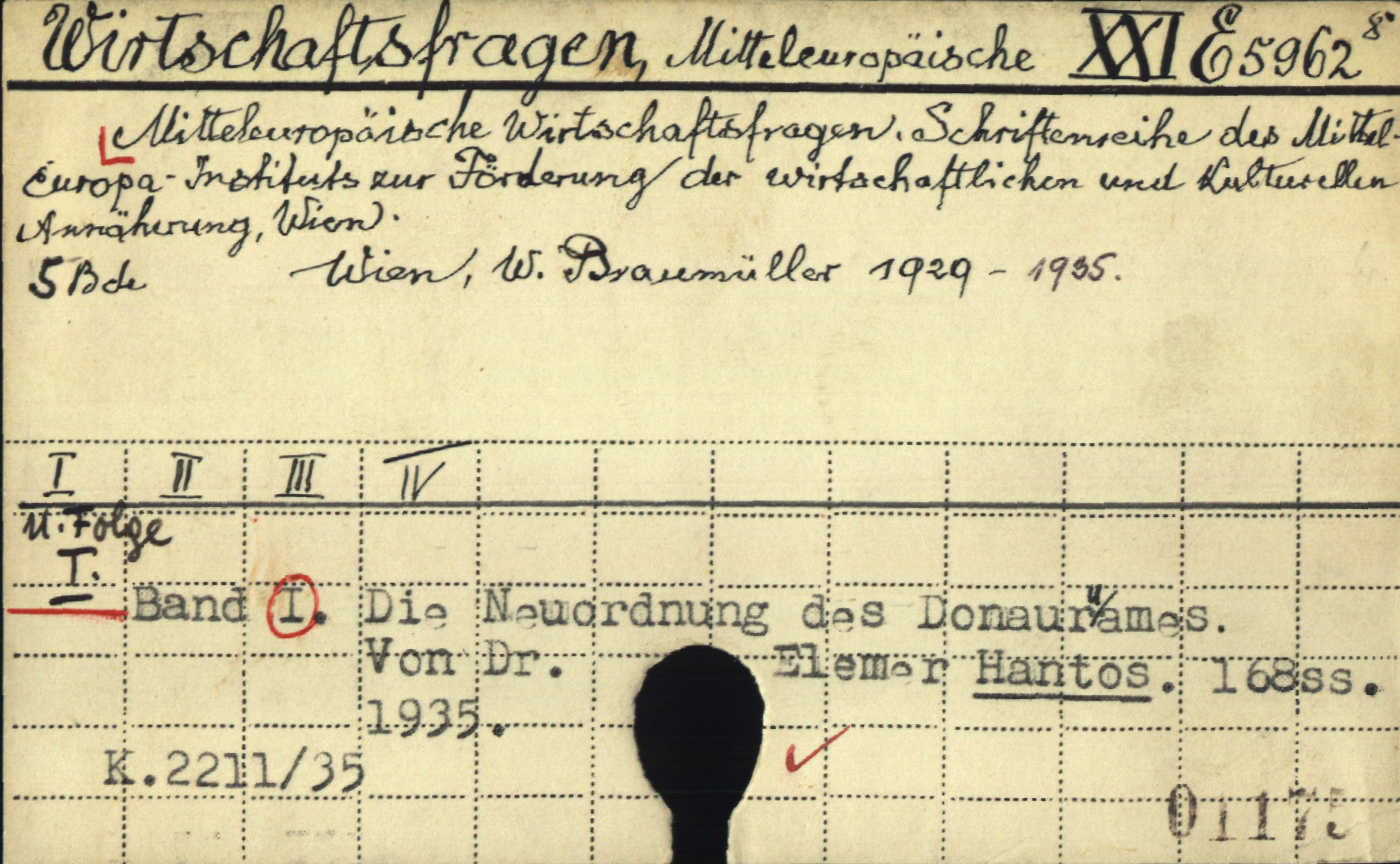 Wirtschaftsfragen, Mitteleuropäische XXI E 5962 8
Mitteleuropäische Wirtschaftsfragen. Schriftenreihe des Mittel-
europa-Instituts zur Förderung der wirtschaftlichen und kulturellen
Annäherung, Wien.
5 Bde Wien, W. Braumüller 1929 - 1935.
I II III IV
N. Folge
I.
Band I. Die Neuordnung des Donauraumes.
Von Dr. Elemer Hantos. 168ss.
1935.
K.2211/35
01175